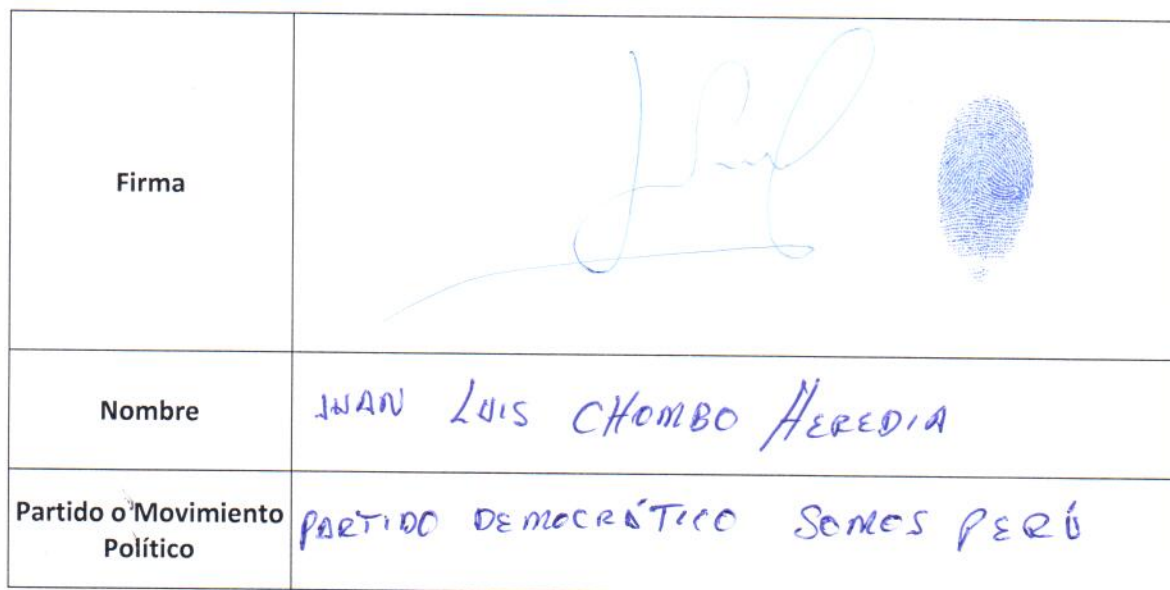 Firma
Nombre
JUAN LUIS CHOMBO HEREDIA
Partido o Movimiento
Político
PARTIDO DEMOCRÁTICO SOMOS PERÚ